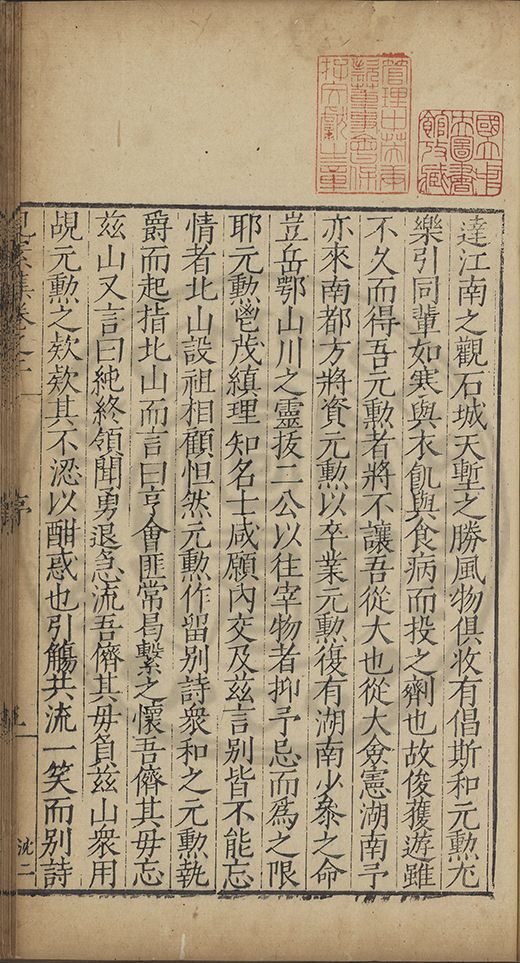 國立中
央圖書
館攷藏
管理中英庚
款董事會保
存文獻之章
達江南之觀石城天塹之勝風物俱收有倡斯和元勲尤
樂引同輩如寒與衣飢與食病而投之劑也故俊獲遊雖
不久而得吾元勲者將不讓吾從大也從大僉憲湖南予
亦來南都方將資元勲以卒業元勲復有湖南少叅之命
豈岳鄂山川之靈拔二公以往宰物者抑予忌而爲之限
耶元勲鬯茂縝理知名士咸願內交及茲言别皆不能忘
情者北山設祖相顧怛然元勲作留别詩衆和之元勲執
爵而起指北山而言曰亨會匪常曷繫之懷吾儕其毋忘
兹山又言曰純終領聞勇退急流吾儕其毋負兹山衆用
覘元勲之欵欵其不認以酣惑也引觴共流一笑而别詩
沈二